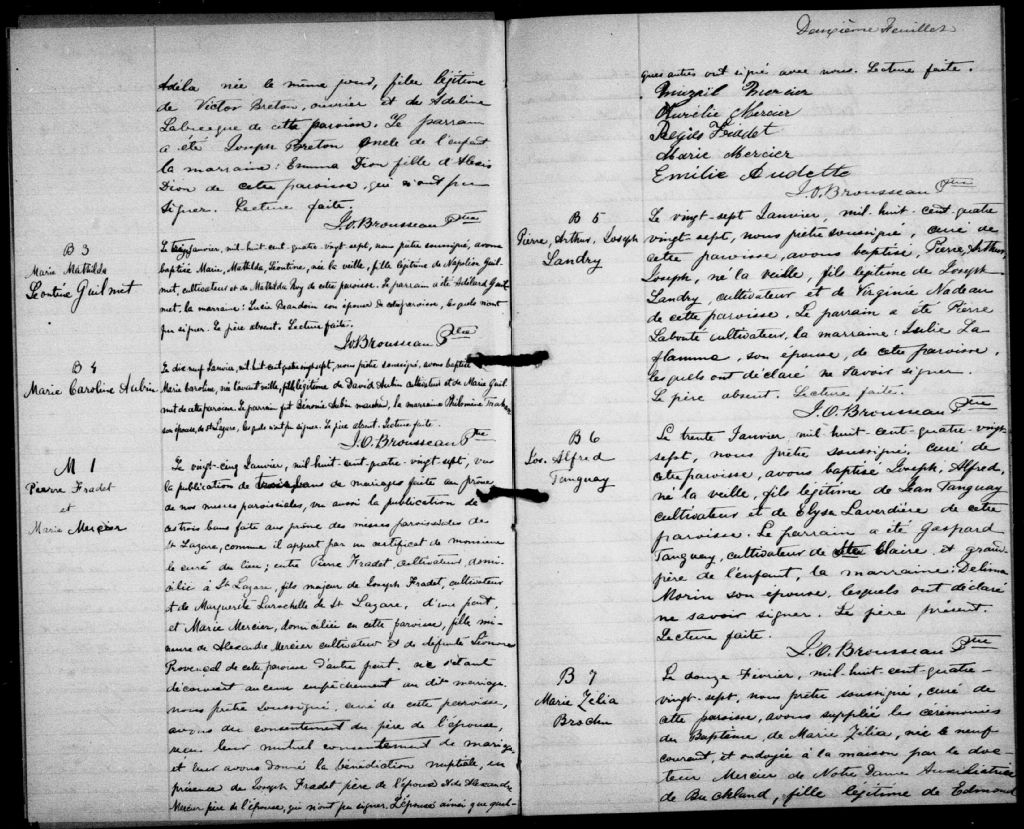 Adéla née le même jour, fille légitime
de Victor Breton, ouvrier et de Adeline
Labrecque de cette paroisse. Le parrain
a été Joseph Breton oncle de l'enfant
la marraine : Emma Dion fille d'Alexis
Dion de cette paroisse, qui n'ont pu
signer. Lecture faite.
J.O. Brousseau Ptre
B 3
Marie Mathilda
Léontine Guilmet
Le Janvier, mil-huit-cent-quatre-vingt-sept, nous prêtre soussigné, avons
baptisé Marie, Mathilda, Léontine, née la veille, fille légitime de Napoléon Guil-
met, cultivateur et de Mathilda Roy de cette paroisse. Le parrain a été Adélard Guil-
met, la marraine : Lucie Beaudoin son épouse de cette paroisse, lesquels n'ont
pu signer. Le père absent. Lecture faite.
J.O. Brousseau Ptre
B 4
Marie Caroline Aubin
Le dix neuf Janvier, mil huit cent quatre vingt sept, nous prêtre soussigné, avons baptisé
Marie Caroline, née l'avant veille, fille légitime de David Aubin cultivateur et de Marie Guil-
met de cette paroisse. Le parrain fut Aubin, la marraine Philomène
son épouse, de St Lazare, lesquels n'ont pu signer. Le père absent. Lecture faite.
J.O. Brousseau Ptre
M 1
Pierre Fradet
et
Marie Mercier
Le vingt-cinq Janvier, mil-huit-cent-quatre-vingt-sept, vu
la publication de trois bans de mariages faite au prône
de nos messes paroissiales, vu aussi la publication de
ces trois bans faite au prône des messes paroissiales de
St Lazare, comme il appert par un certificat de monsieur
le curé du lieu ; entre Pierre Fradet, cultivateur, domi-
cilié à St Lazare, fils majeur de Joseph Fradet, cultivateur
et de Marguerite Larochelle de St Lazare, d'une part,
et Marie Mercier, domiciliée en cette paroisse, fille mi-
neure de Alexandre Mercier cultivateur et de défunte Léonore
Provençal de cette paroisse d'autre part. ne s'étant
découvert aucun empêchement au dit mariage.
nous prêtre soussigné, curé de cette paroisse,
avons du consentement du père de l'épouse,
reçu leur mutuel consentement de mariage
et leur avons donné la bénédiction nuptiale, en
présence de Joseph Fradet père de l'époux et de Alexandre
Mercier père de l'épouse, qui n'ont pu signer. L'épouse ainsi que quel-
Deuxième Feuillet
ques autres ont signé avec nous. Lecture faite.
Mercier
Aurélie Mercier
Régis Fradet
Marie Mercier
Emilie Audette
J.O. Brousseau Ptre
B 5
Pierre, Arthur, Joseph
Landry
Le vingt-sept Janvier, mil-huit-cent-quatre
vingt-sept, nous prêtre soussigné, curé de
cette paroisse, avons baptisé, Pierre, Arthur,
Joseph, né la veille, fils légitime de Joseph
Landry, cultivateur et de Virginie Nadeau
de cette paroisse. Le parrain a été Pierre
Labonté cultivateur, la marraine : Julie La
flamme, son épouse, de cette paroisse,
lesquels ont déclaré ne savoir signer.
Le père absent. Lecture faite.
J.O. Brousseau Ptre
B 6
Jos. Alfred
Tanguay
Le trente Janvier, mil-huit-cent-quatre-vingt-
sept, nous prêtre soussigné, curé de
cette paroisse avons baptisé Joseph, Alfred,
né la veille, fils légitime de Jean Tanguay
cultivateur et de Elyse Laverdière de cette
paroisse. Le parrain a été Gaspard
Tanguay, cultivateur de Ste Claire, et grand
père de l'enfant, la marraine : Delima
Morin son épouse, lesquels ont déclaré
ne savoir signer. Le père présent.
Lecture faite.
J.O. Brousseau Ptre
B 7
Marie Zélia
Brochu
Le douze Février, mil-huit-cent-quatre-
vingt-sept, nous prêtre soussigné, curé de
cette paroisse, avons suppléé les cérémonies
du Baptême de Marie Zélia, née le neuf
courant, et ondoyée à la maison par le doc-
teur Mercier de Notre Dame Auxiliatrice
de Buckland, fille légitime de Edmond